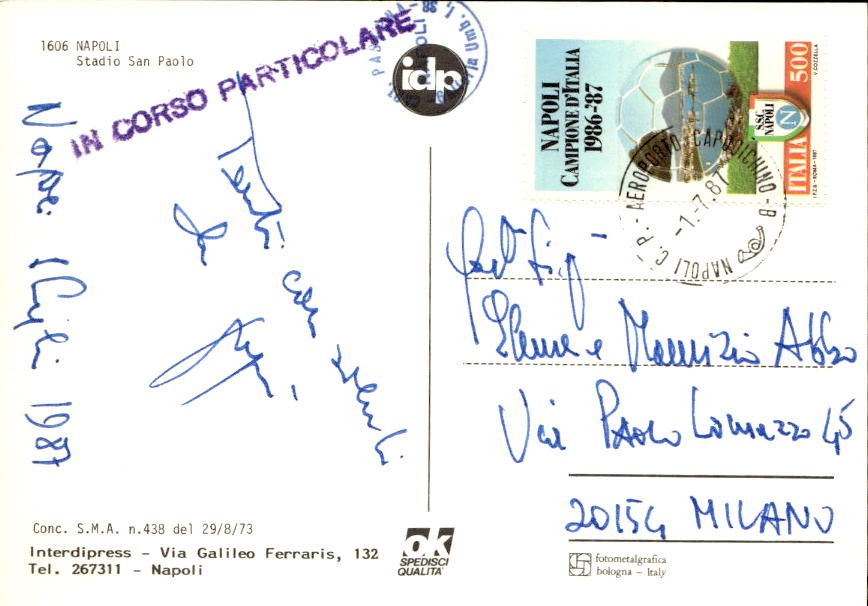 1606 NAPOLI
Stadio San Paolo
IN CORSO PARTICOLARE
idp
Napoli 1 Luglio 1987
Tanti cari saluti
da
NAPOLI
CAMPIONE D'ITALIA
1986-'87
500
ITALIA
SSC NAPOLI
N
V. COZZELLA
I.P.Z.S. - ROMA - 1987
NAPOLI C.P. - AEROPORTO CAPODICHINO - B
-1.-7.87
Elena e Maurizio Abbo
Via Paolo Lomazzo 45
20154 MILANO
Conc. S.M.A. n.438 del 29/8/73
Interdipress - Via Galileo Ferraris, 132
Tel. 267311 - Napoli
ok
SPEDISCI
QUALITA'
fotometalgrafica
bologna - Italy